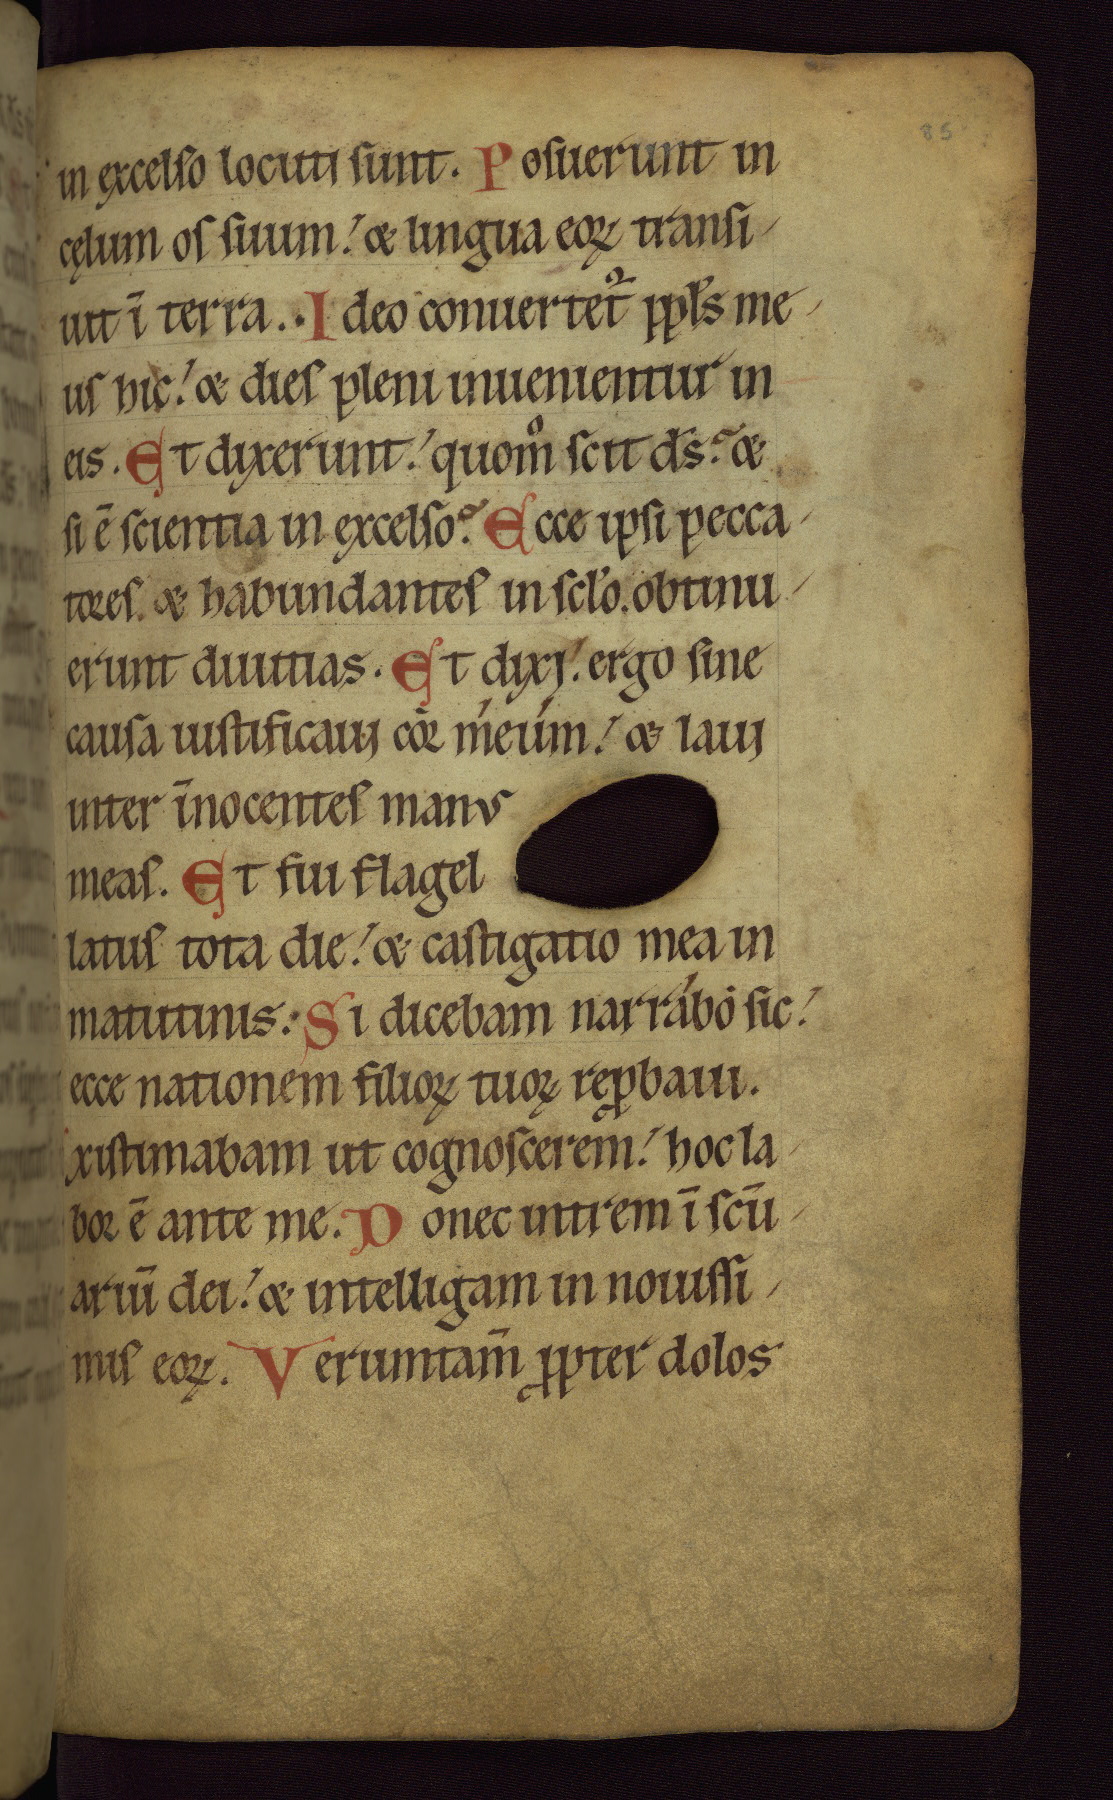 85
in excelso locuti sunt. Posuerunt in
cęlum os suum: & lingua eoꝝ transi-
uit ī terra. Ideo conuertet᷑ ppl̓s me-
us hic: & dies pleni inuenientur in
eis. Et dixerunt: quom̊ scit ds̄? &
si ē scientia in excelso? Ecce ipsi pecca-
tores. & habundantes in scl̓o. obtinu-
erunt diuitias. Et dixi: ergo sine
causa iustificaui cor meum: & laui
inter īnocentes manus
meas. Et fui flagel
latus tota die: & castigatio mea in
matutinis. Si dicebam narrabo sic:
ecce nationem filioꝝ tuoꝝ reꝓbaui.
xistimabam ut cognoscerem: hoc la-
bor ē ante me. Donec intrem ī scū-
ariū dei: & intelligam in nouissi-
mis eoꝝ. Veruntam̄ ꝓpter dolos